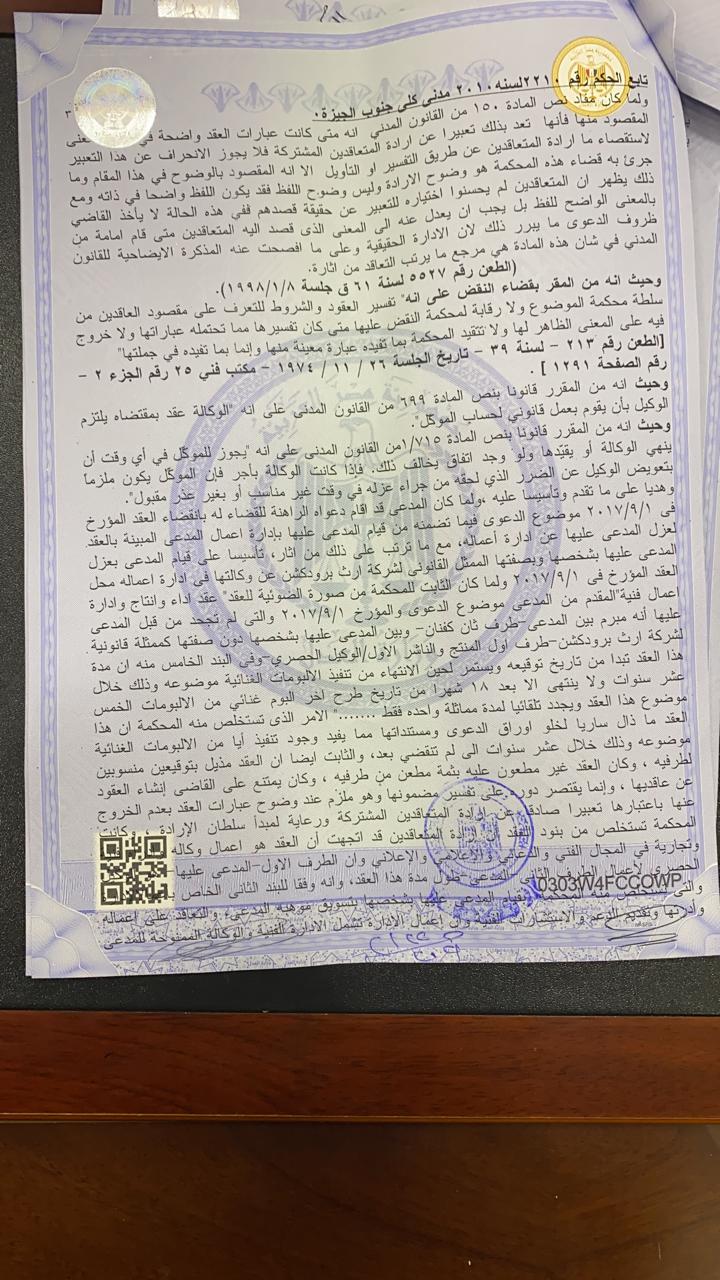 تابع الحكم رقم ٢٢١٠ لسنه ٢٠١٠ مدنى كلى جنوب الجيزة.
٣
ولما كان مفاد نص المادة ١٥٠ من القانون المدني انه متى كانت عبارات العقد واضحة في
المقصود منها فأنها تعد بذلك تعبيرا عن ارادة المتعاقدين المشتركة فلا يجوز الانحراف عن هذا التعبير
لاستقصاء ما ارادة المتعاقدين عن طريق التفسير او التأويل الا انه المقصود بالوضوح في هذا المقام وما
جرئ به قضاء هذه المحكمة هو وضوح الارادة وليس وضوح اللفظ فقد يكون اللفظ واضحا في ذاته ومع
ذلك يظهر ان المتعاقدين لم يحسنوا اختياره للتعبير عن حقيقة قصدهم ففي هذه الحالة لا يأخذ القاضي
بالمعنى الواضح للفظ بل يجب ان يعدل عنه الى المعنى الذى قصد اليه المتعاقدين متى قام امامة من
ظروف الدعوى ما يبرر ذلك لان الادارة الحقيقية وعلى ما افصحت عنه المذكرة الايضاحية للقانون
المدني في شان هذه المادة هي مرجع ما يرتب التعاقد من اثارة.
(الطعن رقم ٥٥٢٧ لسنة ٦١ ق جلسة ١٩٩٨/١/٨).
وحيث انه من المقر بقضاء النقض على انه" تفسير العقود والشروط للتعرف على مقصود العاقدين من
سلطة محكمة الموضوع ولا رقابة لمحكمة النقض عليها متى كان تفسيرها مما تحتمله عباراتها ولا خروج
فيه على المعنى الظاهر لها ولا تتقيد المحكمة بما تفيده عبارة معينة منها وإنما بما تفيده في جملتها"
[الطعن رقم ٢١٣ - لسنة ٣٩ - تاريخ الجلسة ٢٦ / ١١ / ١٩٧٤ - مكتب فني ٢٥ رقم الجزء ٢ -
رقم الصفحة ١٢٩١ ] .
وحيث انه من المقرر قانونا بنص المادة ٦٩٩ من القانون المدنى على انه "الوكالة عقد بمقتضاه يلتزم
الوكيل بأن يقوم بعمل قانوني لحساب الموكل".
وحيث انه من المقرر قانونا بنص المادة ١/٧١٥من القانون المدنى على انه "يجوز للموكل في أي وقت أن
ينهي الوكالة أو يقيّدها ولو وجد اتفاق يخالف ذلك. فإذا كانت الوكالة بأجر فإن الموكّل يكون ملزماً
بتعويض الوكيل عن الضرر الذي لحقه من جراء عزله في وقت غير مناسب أو بغير عذر مقبول".
وهديا على ما تقدم وتأسيسا عليه ،ولما كان المدعى قد اقام دعواه الراهنة للقضاء له بانقضاء العقد المؤرخ
فى ٢٠١٧/٩/١ موضوع الدعوى فيما تضمنه من قيام المدعى عليها بإدارة اعمال المدعى المبينة بالعقد
لعزل المدعى عليها عن ادارة أعماله، مع ما ترتب على ذلك من اثار، تأسيسا على قيام المدعى بعزل
المدعى عليها بشخصها وبصفتها الممثل القانوني لشركة ارث برودكشن عن وكالتها في ادارة اعماله محل
العقد المؤرخ فى ٢٠١٧/٩/١ ولما كان الثابت للمحكمة من صورة الضوئية للعقد" عقد اداء وانتاج وادارة
اعمال فنية"المقدم من المدعي موضوع الدعوى والمؤرخ ٢٠١٧/٩/١ والتى لم تجحد من قبل المدعى
عليها أنه مبرم بين المدعى-طرف ثان كفنان- وبين المدعى عليها بشخصها دون صفتها كممثلة قانونية
لشركة ارث برودكشن-طرف اول المنتج والناشر الاول/الوكيل الحصري-وفى البند الخامس منه ان مدة
هذا العقد تبدا من تاريخ توقيعه ويستمر لحين الانتهاء من تنفيذ الالبومات الغنائية موضوعه وذلك خلال
عشر سنوات ولا ينتهى الا بعد ١٨ شهرا من تاريخ طرح اخر البوم غنائي من الالبومات الخمس
موضوع هذا العقد ويجدد تلقائيا لمدة مماثلة واحده فقط ......." الامر الذى تستخلص منه المحكمة ان هذا
العقد ما زال ساريا لخلو اوراق الدعوى ومستنداتها مما يفيد وجود تنفيذ أيا من الالبومات الغنائية
موضوعه وذلك خلال عشر سنوات الى لم تنقضي بعد، والثابت ايضا ان العقد مذيل بتوقيعين منسوبين
لطرفيه ، وكان العقد غير مطعون عليه بثمة مطعن من طرفيه ، وكان يمتنع على القاضى إنشاء العقود
عن عاقديها ، وإنما يقتصر دوره على تفسير مضمونها وهو ملزم عند وضوح عبارات العقد بعدم الخروج
عنها باعتبارها تعبيرا صادقا عن إرادة المتعاقدين المشتركة ورعاية لمبدأ سلطان الإرادة ، وكانت
المحكمة تستخلص من بنود العقد ان إرادة المتعاقدين قد اتجهت أن العقد هو اعمال وكاله
وتجارية في المجال الفني والدعائي والإعلامي والإعلاني وان الطرف الاول-المدعى عليها-
الحصري لاعمال الطرف الثانى-المدعى-طول مدة هذا العقد، وانه وفقا للبند الثانى الخاص
0303W4FCCOWP
والتى تستخلص منه المحكمة قيام المدعى عليها بشخصها بتسويق موهبه المدعى، والتعاقد على اعماله
وتقديم الدعم والاستشارات الفنية وان اعمال الإدارة تشمل الادارة الفنية والوكالة الممنوحة للمدعى